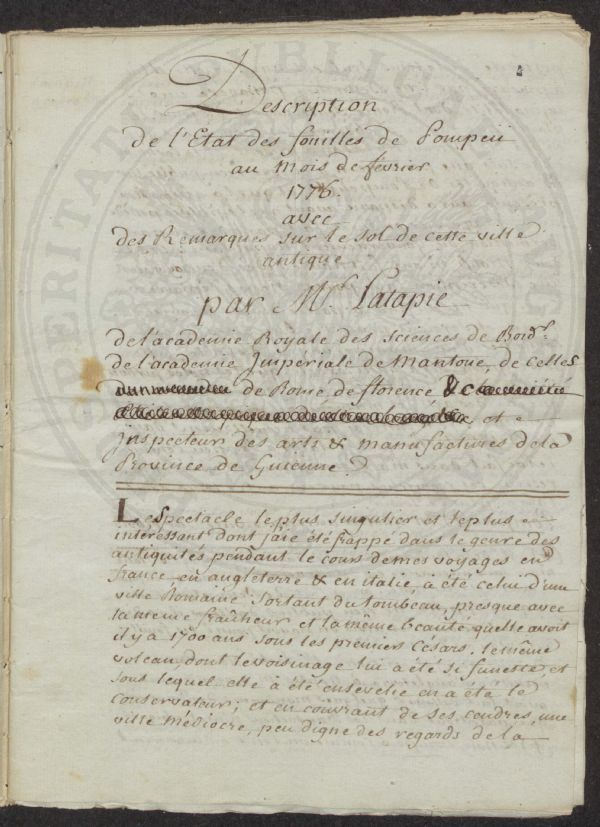 Description
de l'Etat des fouilles de Pompeii
au mois de février
1776.
avec
des Remarques sur le sol de cette ville
antique
par Mr. Latapie
de l'academie Royale des sciences de Bord.
de l'academie Impériale de Mantoue, de celles
de Rome de florence &c
et
Inspecteur des arts & manufactures de la
Province de Guienne.
Le spectacle le plus singulier et le plus
intéressant dont j'aie été frappé dans le genre des
antiquités pendant le cours de mes voyages en
france en angleterre & en italie, a été celui d'une
ville Romaine sortant du tombeau, presque avec
la meme fraîcheur et la même beauté quelle avoit
il y a 1700 ans sous les premiers Césars. le même
volcan, dont le voisinage lui a été si funeste, et
sous lequel elle a été ensevelie en a été le
conservateur; et en couvrant de ses cendres, une
ville médiocre, peu digne des regards de la